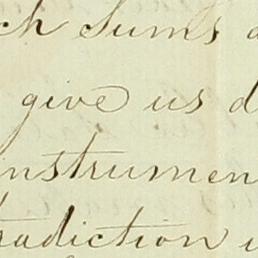 ch sums a
give us d
instrumen
tradiction i